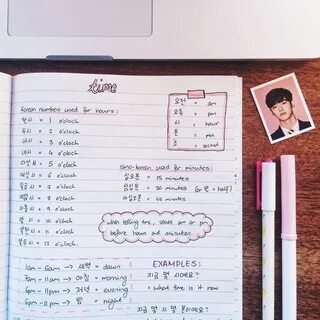 time
Korean numbers used for hours:
한시 = 1 o'clock
두시 = 2 o'clock
세시 = 3 o'clock
네시 = 4 o'clock
다섯시 = 5 o'clock
여섯시 = 6 o'clock
일곱시 = 7 o'clock
여덟시 = 8 o'clock
아홉시 = 9 o'clock
열시 = 10 o'clock
열한시 = 11 o'clock
열두시 = 12 o'clock
1am - 6am → 새벽 = dawn
7am - 11am → 아침 = morning
→ 저녁 = evening
→ 밤 = night
오전 = am
오후 = pm
시 = hour
분 = min
초 = second
Sino-korean used for minutes:
십오분 = 15 minutes
삼십분 = 30 minutes (or 반 = half)
= 45 minutes
when telling time, state am or pm
before hours and minutes.
EXAMPLES:
지금 몇 시에요?
= what time is it now
지금 몇 시 몇 분이에요?